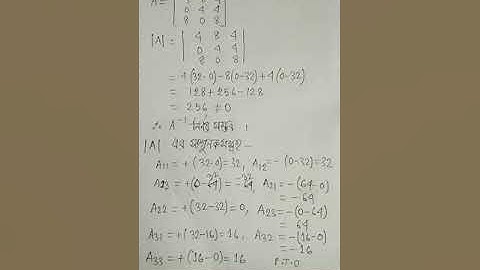 A = [
0 4 4
8 0 8]
|A| = | 4 8 4
0 4 4
8 0 8 |
= 4(32-0)-8(0-32)+4(0-32)
= 128+256-128
= 256 ≠ 0
∴ A⁻¹ নির্ণয় সম্ভব ।
|A| এর সহগুণকসমূহ -
A11 = +(32-0)=32, A12= -(0-32)=32
A23 = +(0-32)=-32, A21 = -(64-0)
= -64
A22 = +(32-32)=0, A23 = -(0-64)
= 64
A31 = +(32-16)=16, A32 = -(16-0)
= -16
A33 = +(16-0)=16 P.T.O